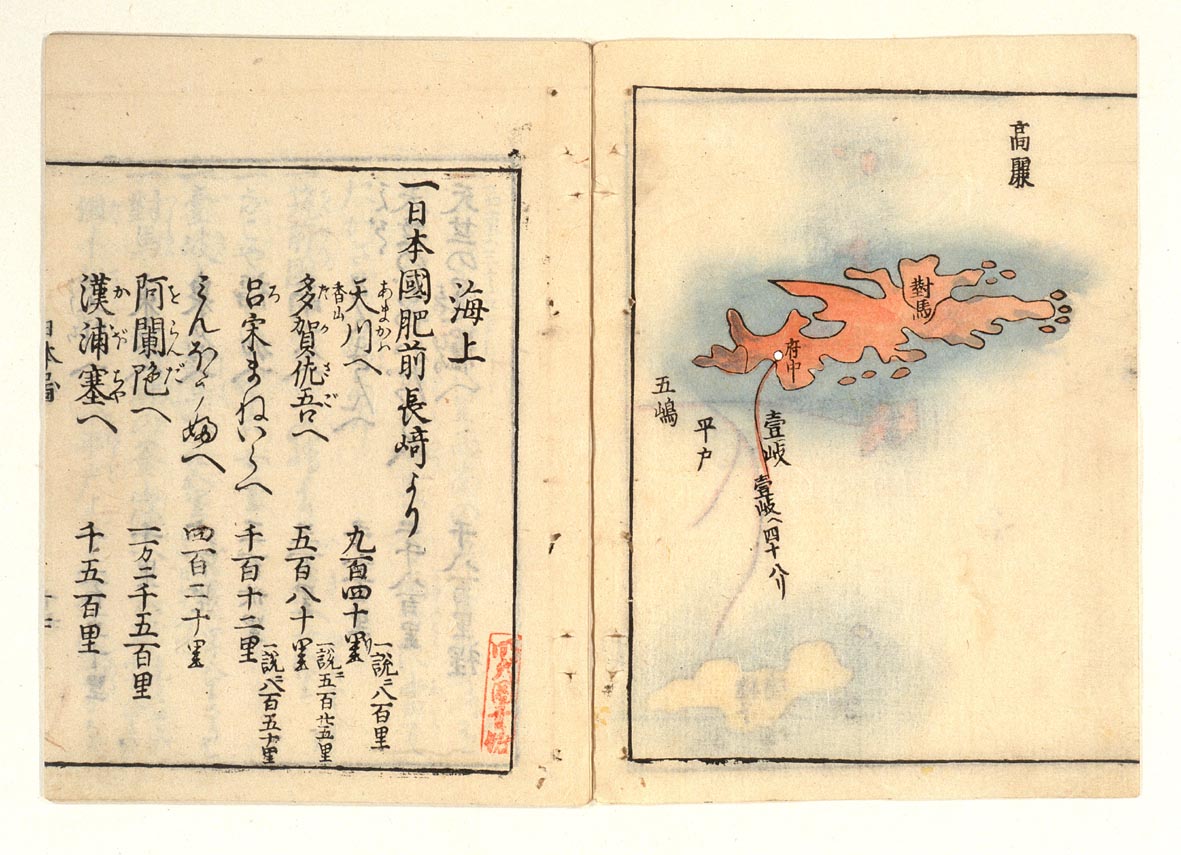 高麗
對馬
府中
壹岐
壹岐へ四十八り
平戸
五嶋
海上
一日本國肥前長﨑より
天川へ 九百四十里 一説ニ八百里
あまかハ
香山
多賀佐吾へ 五百八十里 一説ニ五百廿五里
たかさご
呂宋まねいらへ 千百十二里 一説ニ八百五十里
ろ
四百二十里
阿蘭陀へ 一万二千五百里
をらんだ
漢浦塞へ 千五百里
かぼちや